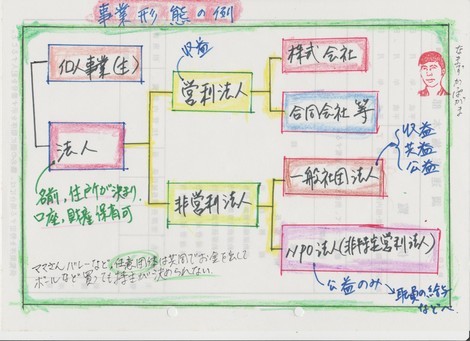 事業形態の例
個人事業(主)
法人
名前、住所が決まり、
口座、財産保有可
収益
営利法人
非営利法人
株式会社
合同会社 等
一般社団法人
収益
共益
公益
NPO法人(非特定営利法人)
公益のみ
職員の給与
などへ
ママさんバレーなど、任意団体は共同でお金を出して
ボールなど買っても持主が決められない。